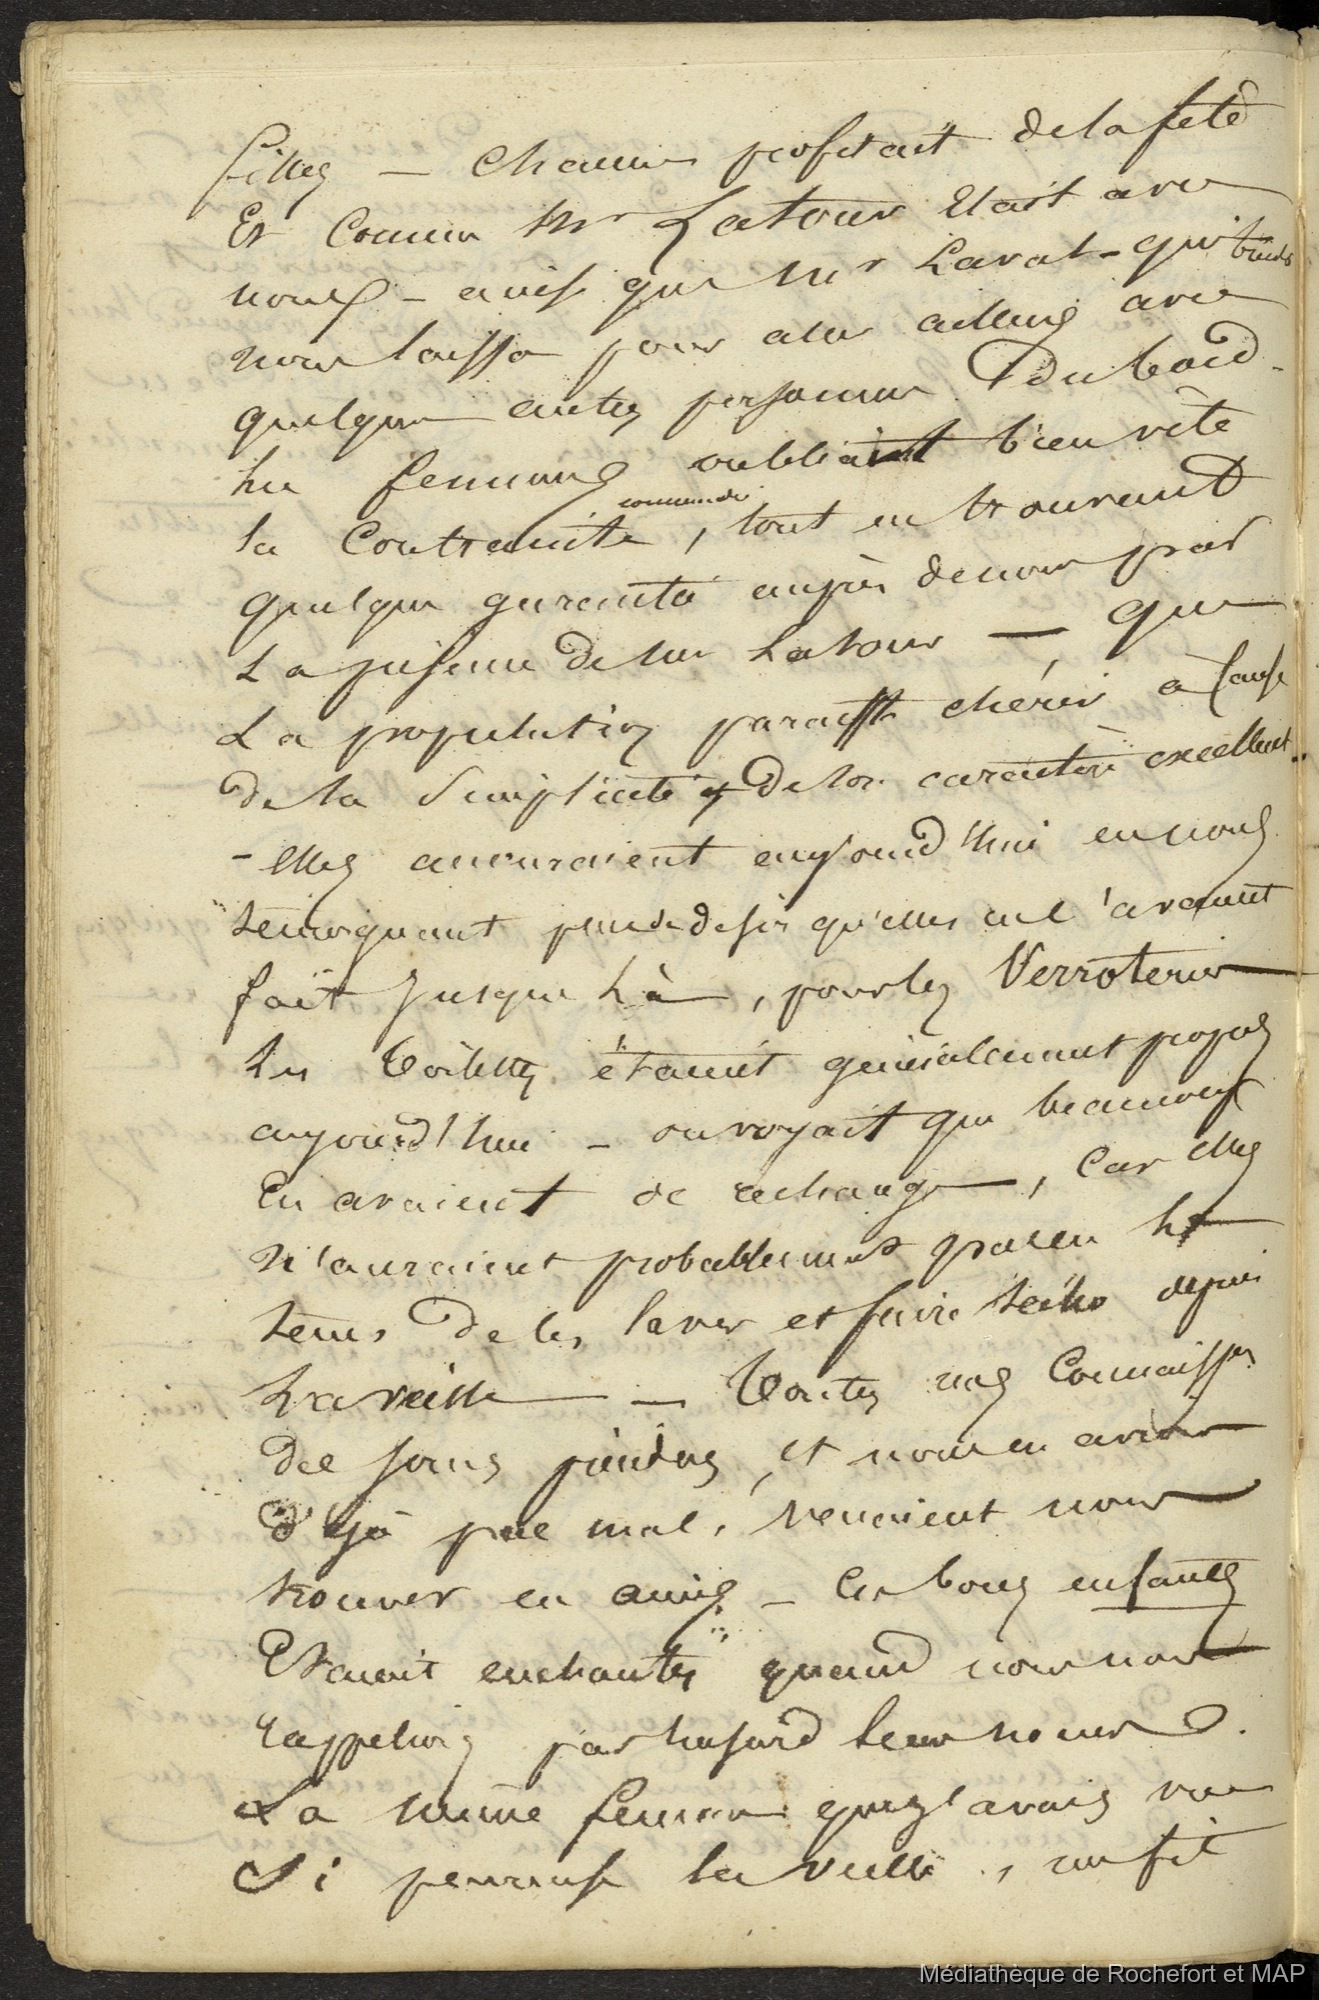 filles — Chacun profitait de la fête
Et Comme Mr Latour Etait avec
nous — ainsi que Mr Laval - qui bientôt
nous laissa pour aler ailleurs avec
quelques autres personnes Du bord -
Les femmes oubliaient bien vite
la Contrainte commandée, tout en trouvant
quelque garantie auprès de nous par
La présence de Mr Latour — que
La population parait chérir à cause
de sa Simplicité et De son caractère excellent.
- elles accouraient aujourd'hui en nous
témoignant plus de desir qu'elles ne l'avaient
fait Jusque Là, pour les Verroteries
Les toilettes étaient généralement propres
aujourd'hui — on voyait que beaucoup
En avaient de rechange, Car elles
N'auraient probablement pas eu le
tems De les laver et faire sécher depuis
La veille — Toutes nos Connaissces
Des jours , et nous en avions
Déjà pas mal, venaient nous
trouver en amis — Ces bons enfants
Etaient enchantés quand nous nous
rappelions par hasard leurs noms.
La même femme que j'avais vue
Si peureuse la veille, me fit
Médiathèque de Rochefort et MAP